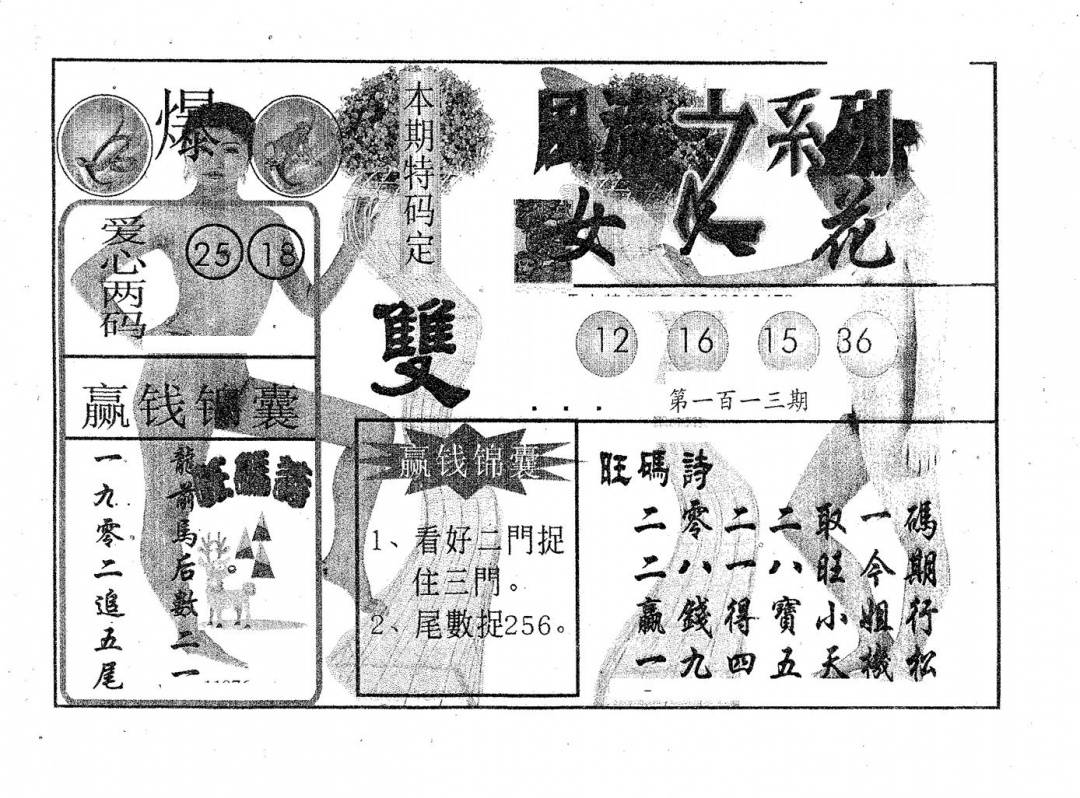 爆
爱心两码
25 18
赢钱锦囊
旺碼詩
龍前馬后數二一
一九零二追五尾
本期特码定
雙
系列
女人花
12 16 15 36
第一百一十三期
赢钱锦囊
1、看好二門捉
住三門。
2、尾數捉256。
旺碼詩
二零二二取一碼
二八一八旺今期
贏錢得寶小姐行
一九四五天機松